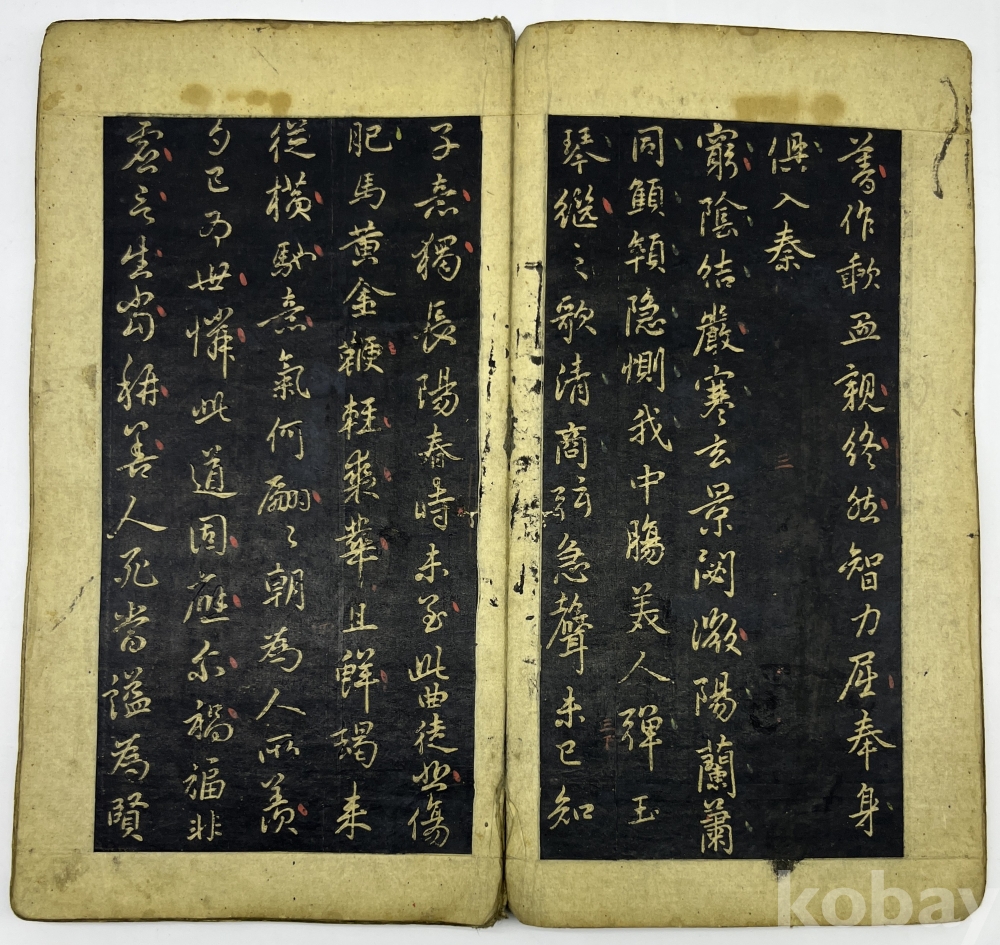 善作歃血親終然智力屈奉身
俱入秦
窮陰結嚴寒玄景閟微陽蘭蕭
同顦顇隱惻我中腸美人彈玉
琴継之歌清商弦急聲未已知
子意獨長陽春時未至此曲徒悲傷
肥馬黄金鞭輕裘華且鮮朅来
從橫馳意氣何翩〻朝為人所羨
夕已為世憐此道固應尔禍福非
虛言生當稱善人死當謚為賢
三
三下
kobay